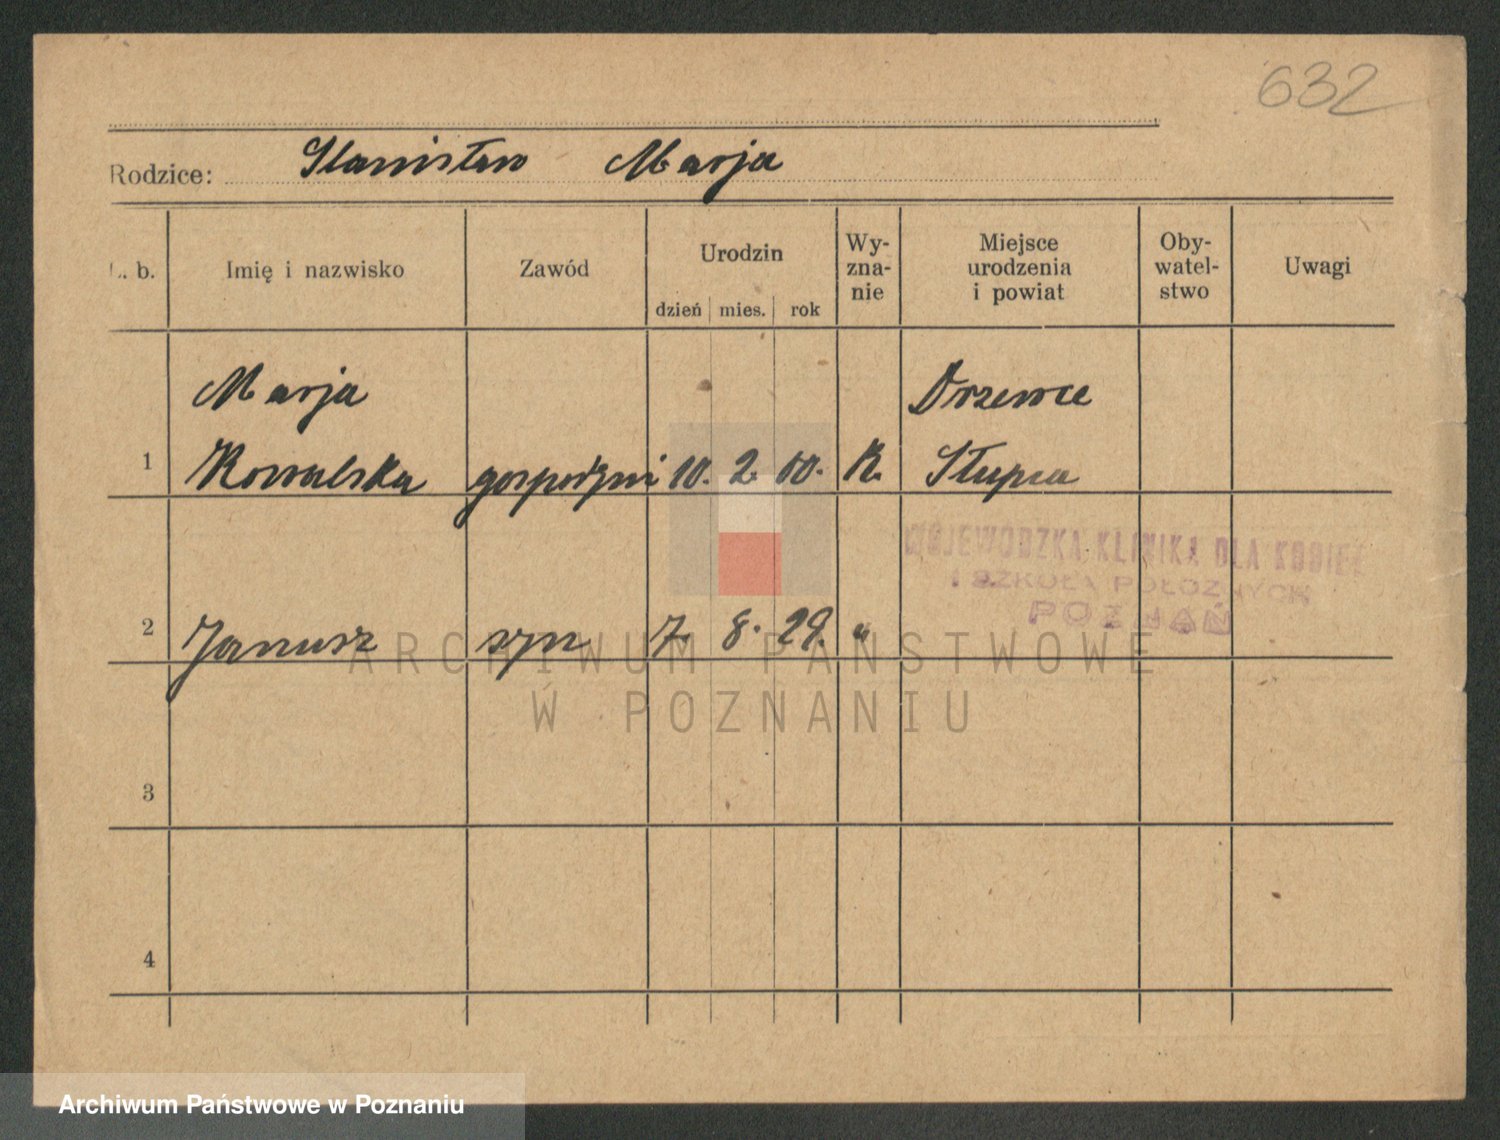 632
Rodzice: Stanisław Marja
L. b.
Imię i nazwisko
Zawód
Urodzin
dzień mies. rok
Wy-
zna-
nie
Miejsce
urodzenia
i powiat
Oby-
watel-
stwo
Uwagi
Marja Drzewce
1 Kowalska gospodyni 10. 2. 00. K. Słupca
WOJEWÓDZKA KLINIKA DLA KOBIET
I SZKOŁA POŁOŻNYCH
POZNAŃ
2 Janusz syn 7. 8. 29. "
ARCHIWUM PAŃSTWOWE
W POZNANIU
3
4
Archiwum Państwowe w Poznaniu